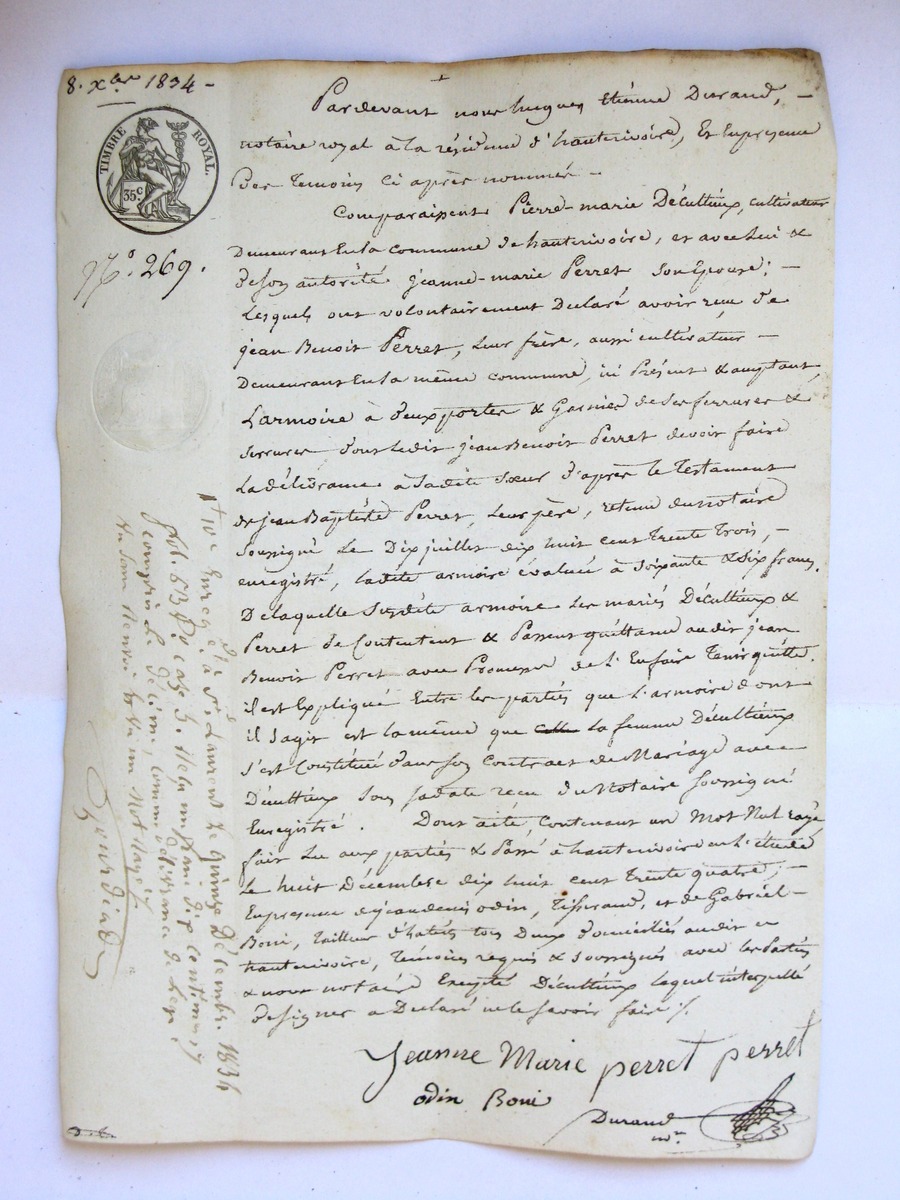 8. Xbre 1834 -
TIMBRE ROYAL.
35 c.
No. 269.
Pardevant nous hugues Etienne Durand, -
notaire royal à la résidence d'hauterivoire, Et Enpresence
Des Temoins Ci après nommés -
Comparaissent Pierre-marie Décultieux, cultivateur
Demeurant En la commune de hauterivoire, et avec Lui &
de son autorité jeanne-marie Perret son Epouse; -
Lesquels ont volontairement Declaré avoir reçu de
jean Benoit Perret, Leur frère, aussi cultivateur -
Demeurant En la même commune, ici Présent & acceptant,
L'armoire à deux portes & Garnie de ses ferrures &
serrures dont Ledit jean Benoit Perret devoit faire
La délivrance à Sadite Sœur d'après le Testament
de jean Baptiste Perret, Leur père, retenu du notaire
soussigné Le Dix juillet dix huit cent trente trois, -
enregistré, ladite armoire évaluée à soixante & dix francs.
De laquelle Susdite armoire Les mariés Décultieux &
Perret se Contentent & Passent quittance audit jean
Benoit Perret avec Promesse de L'En faire Tenir quitte.
il est Expliqué Entre les parties que L'armoire dont
il s'agit est la même que celle La femme Décultieux
s'est Constitué dans son Contrat de Mariage avec
Décultieux sous sa date reçu du Notaire soussigné
Enregistré. Dont acte, contenant un Mot Nul rayé
fait Lu aux parties & Passé à hauterivoire en L'étude
Le huit Décembre dix huit cent Trente quatre; -
En presence de jean denis odin, Tisserand, et de Gabriel -
Boni, Tailleur d'habits tous Deux domiciliés audit
hauterivoire, Témoins requis & soussignés avec les Parties
& nous notaire Excepté Décultieux Lequel interpellé
de signer a Déclaré ne le savoir faire ./.
Jeanne Marie perret perret
odin Boni
Durand
nre
Enregé à St Laurent le quinze Décembre 1834
fol. 63 Vo Cas 5. Reçu un franc dix Centimes
compris Le décime, comme délivrance de Legs